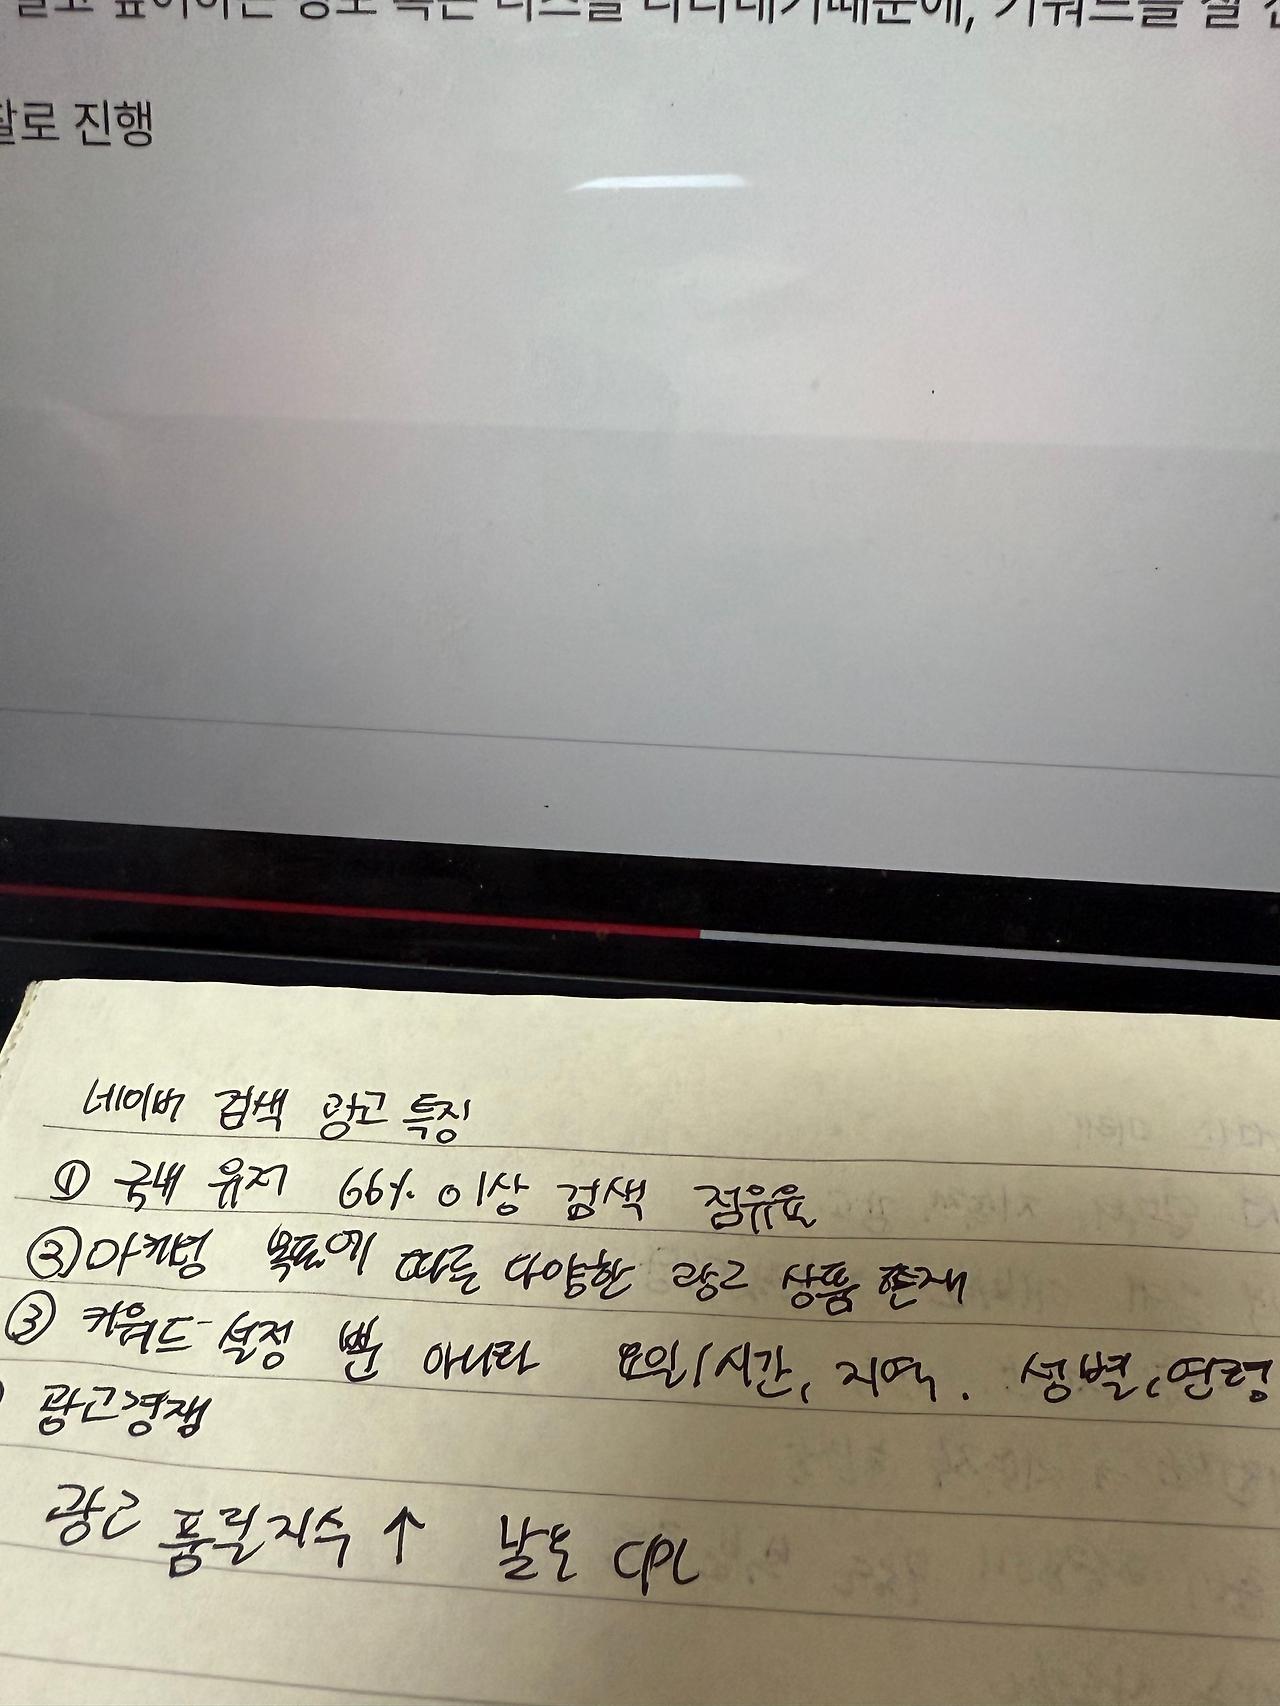 나타내기때문에, 키워드를 잘
찰로 진행
네이버 검색 광고 특징
① 국내 유저 66% 이상 검색 점유율
② 마케팅 목표에 따른 다양한 광고 상품 존재
③ 키워드 설정 뿐 아니라 요일/시간, 지역. 성별, 연령
광고경쟁
광고 품질지수 ↑ 낮은 CPC